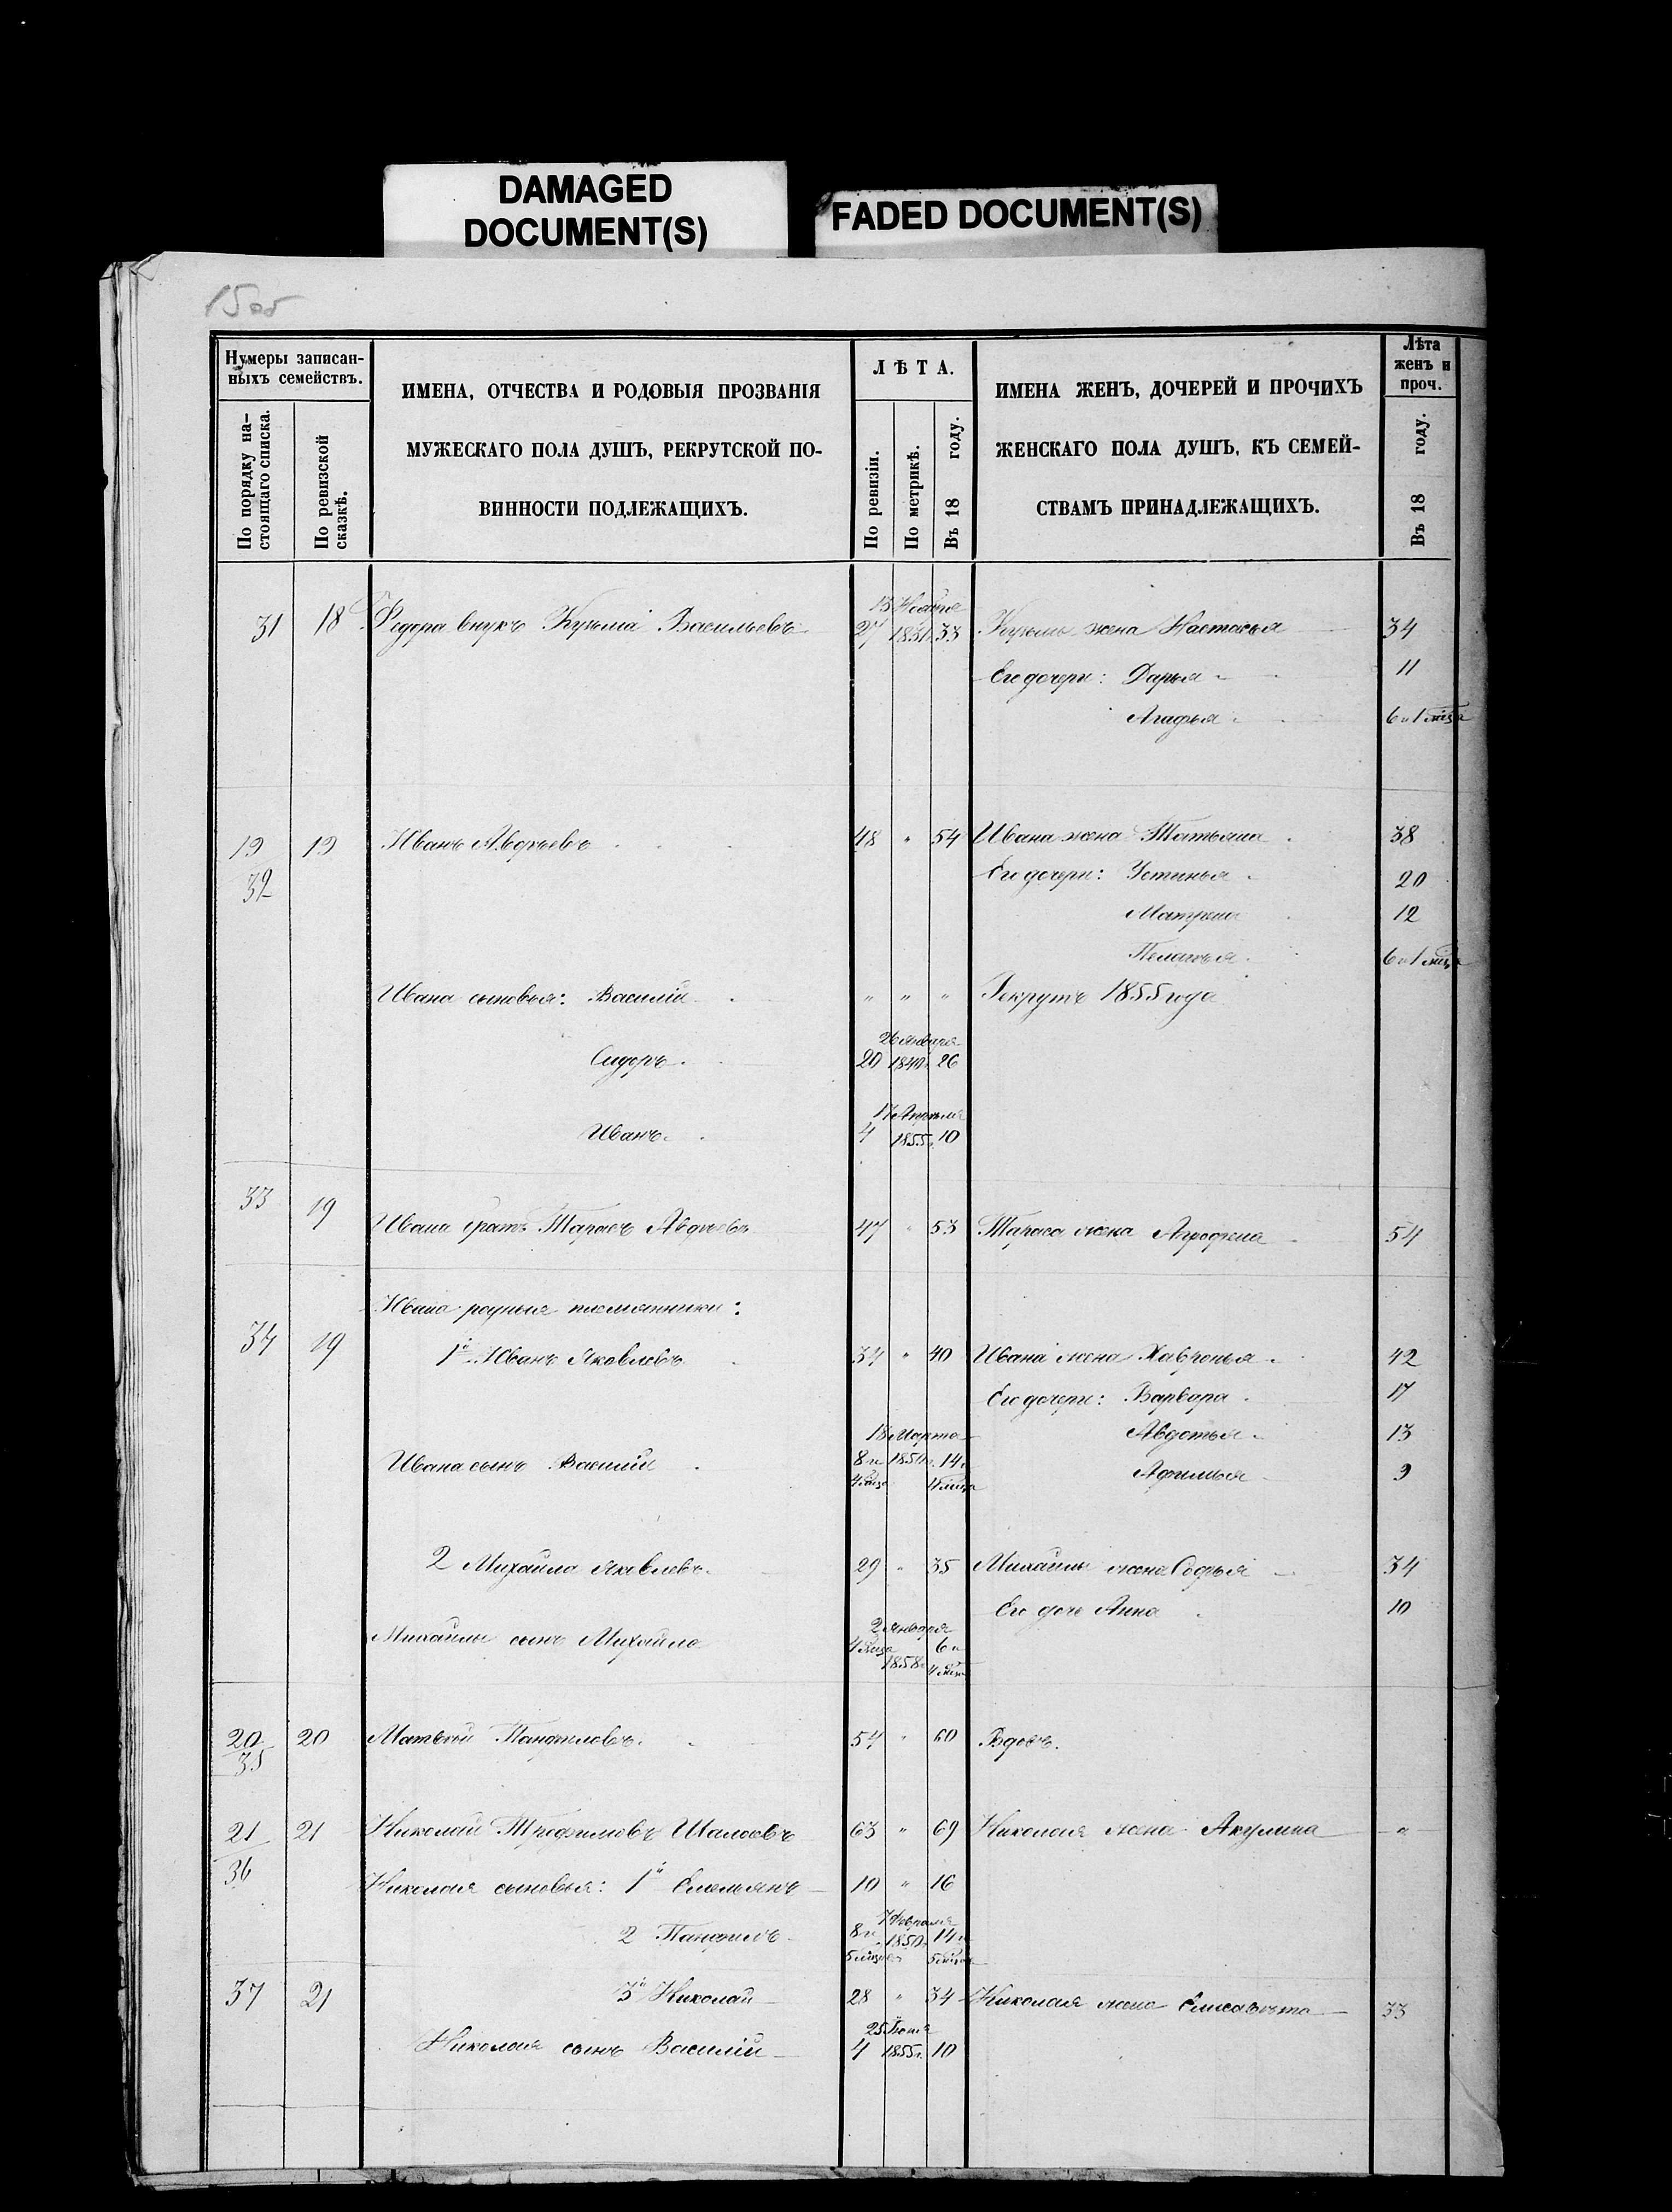 DAMAGED
DOCUMENT(S)
FADED DOCUMENT(S)
15 об
Нумеры записан-
ныхъ семействъ.
По порядку на-
стоящаго списка.
По ревизской
сказкѣ.
ИМЕНА, ОТЧЕСТВА И РОДОВЫЯ ПРОЗВАНІЯ
МУЖЕСКАГО ПОЛА ДУШЪ, РЕКРУТСКОЙ ПО-
ВИННОСТИ ПОДЛЕЖАЩИХЪ.
ЛѢТА.
По ревизіи.
По метрикѣ.
Въ 18 году.
ИМЕНА ЖЕНЪ, ДОЧЕРЕЙ И ПРОЧИХЪ
ЖЕНСКАГО ПОЛА ДУШЪ, КЪ СЕМЕЙ-
СТВАМЪ ПРИНАДЛЕЖАЩИХЪ.
Лѣта
женъ и
проч.
Въ 18 году.
31 18 Федора внукъ Кузьма Васильевъ 27 1831 33 Кузьмы жена Настасья 34
Его дочери: Дарья 11
Агафья 6 и 1 мца
19 19 Иванъ Авдѣевъ 48 " 54 Ивана жена Татьяна 38
32
Его дочери: Устинья 20
Матрена 12
Пелагѣя 6 и 1 мца
Ивана сыновья: Василій " " " Рекрутъ 1855 года
26 января
Сидоръ 20 1840 26
17 Апрѣля
Иванъ 4 1855 10
33 19 Ивана братъ Тарасъ Авдѣевъ 47 " 53 Тараса жена Агрофена 54
Ивана родныя племянники:
34 19 1й Иванъ Яковлевъ 34 " 40 Ивана жена Хавронья 42
Его дочери: Варвара 17
Авдотья 13
18 Марта
Ивана сынъ Василій 8 и 1850 14 и
4 мца 4 мца
Афимья 9
2 Михайла Яковлевъ 29 " 35 Михайлы жена Софья 34
Его дочь Анна 10
2 января
Михайлы сынъ Михайла 4 мца 1858 6 и
4 мца
20 20 Матвѣй Панфиловъ 54 " 60 Вдовъ.
35
21 21 Николай Трофимовъ 63 " 69 Николая жена Акулина "
36
Николая сыновья: 1й Емельянъ 10 " 16
7 Февраля
2 Панфилъ 8 и 1850 14 и
5 мцов 5 мцов
37 21 3й Николай 28 " 34 Николая жена Елисавѣта 33
Николая сынъ Василій 4 1855 г. 10